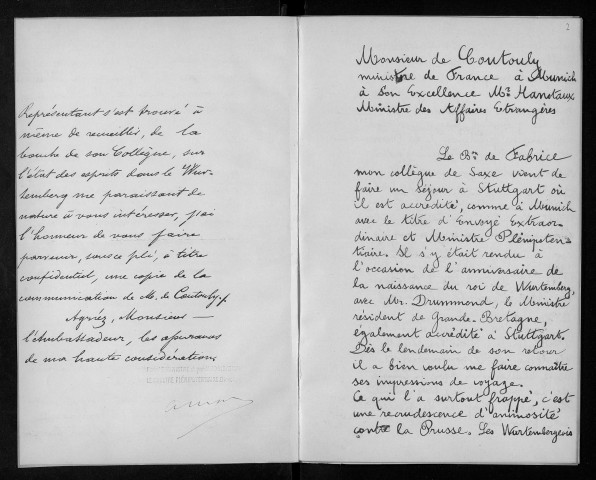 Représentant s'est trouvé à
même de recueillir, de la
bouche de son Collègue, sur
l'état des esprits dans le Wur-
temberg me paraissant de
nature à vous intéresser, j'ai
l'honneur de vous faire
parvenir, sous ce pli, à titre
confidentiel, une copie de la
communication de M. de Coutouly./.
Agréez, Monsieur
l'Ambassadeur, les assurances
de ma haute considération
2
Monsieur de Coutouly
ministre de France à Munich
à Son Excellence Mr. Hanotaux
Ministre des Affaires Etrangères
Le Bn. de Fabrice
mon collègue de Saxe vient de
faire un séjour à Stuttgart où
il est accrédité, comme à Munich
avec le titre d'Envoyé Extraor-
dinaire et Ministre Plénipoten-
tiaire. Il s'y était rendu à
l'occasion de l'anniversaire de
la naissance du roi de Wurtemberg,
avec Mr. Drummond, le Ministre
résident de Grande-Bretagne,
également accrédité à Stuttgart.
Dès le lendemain de son retour
il a bien voulu me faire connaître
ses impressions de voyage.
Ce qui l'a surtout frappé, c'est
une recrudescence d'animosité
contre la Prusse. Les Wurtembergeois